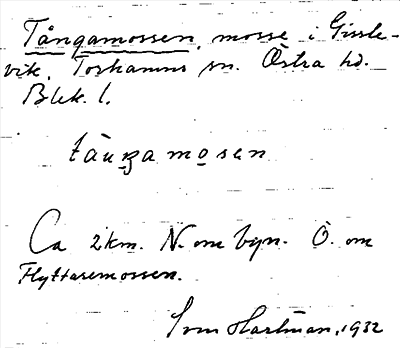 Tångamossen, mosse i Gissle-
vik, Torhamns sn. Östra hd.
Blek. l.
tåŋamosen
Ca 2 km. N. om byn. Ö. om
Flyttaremossen.
Sven Hartman, 1932